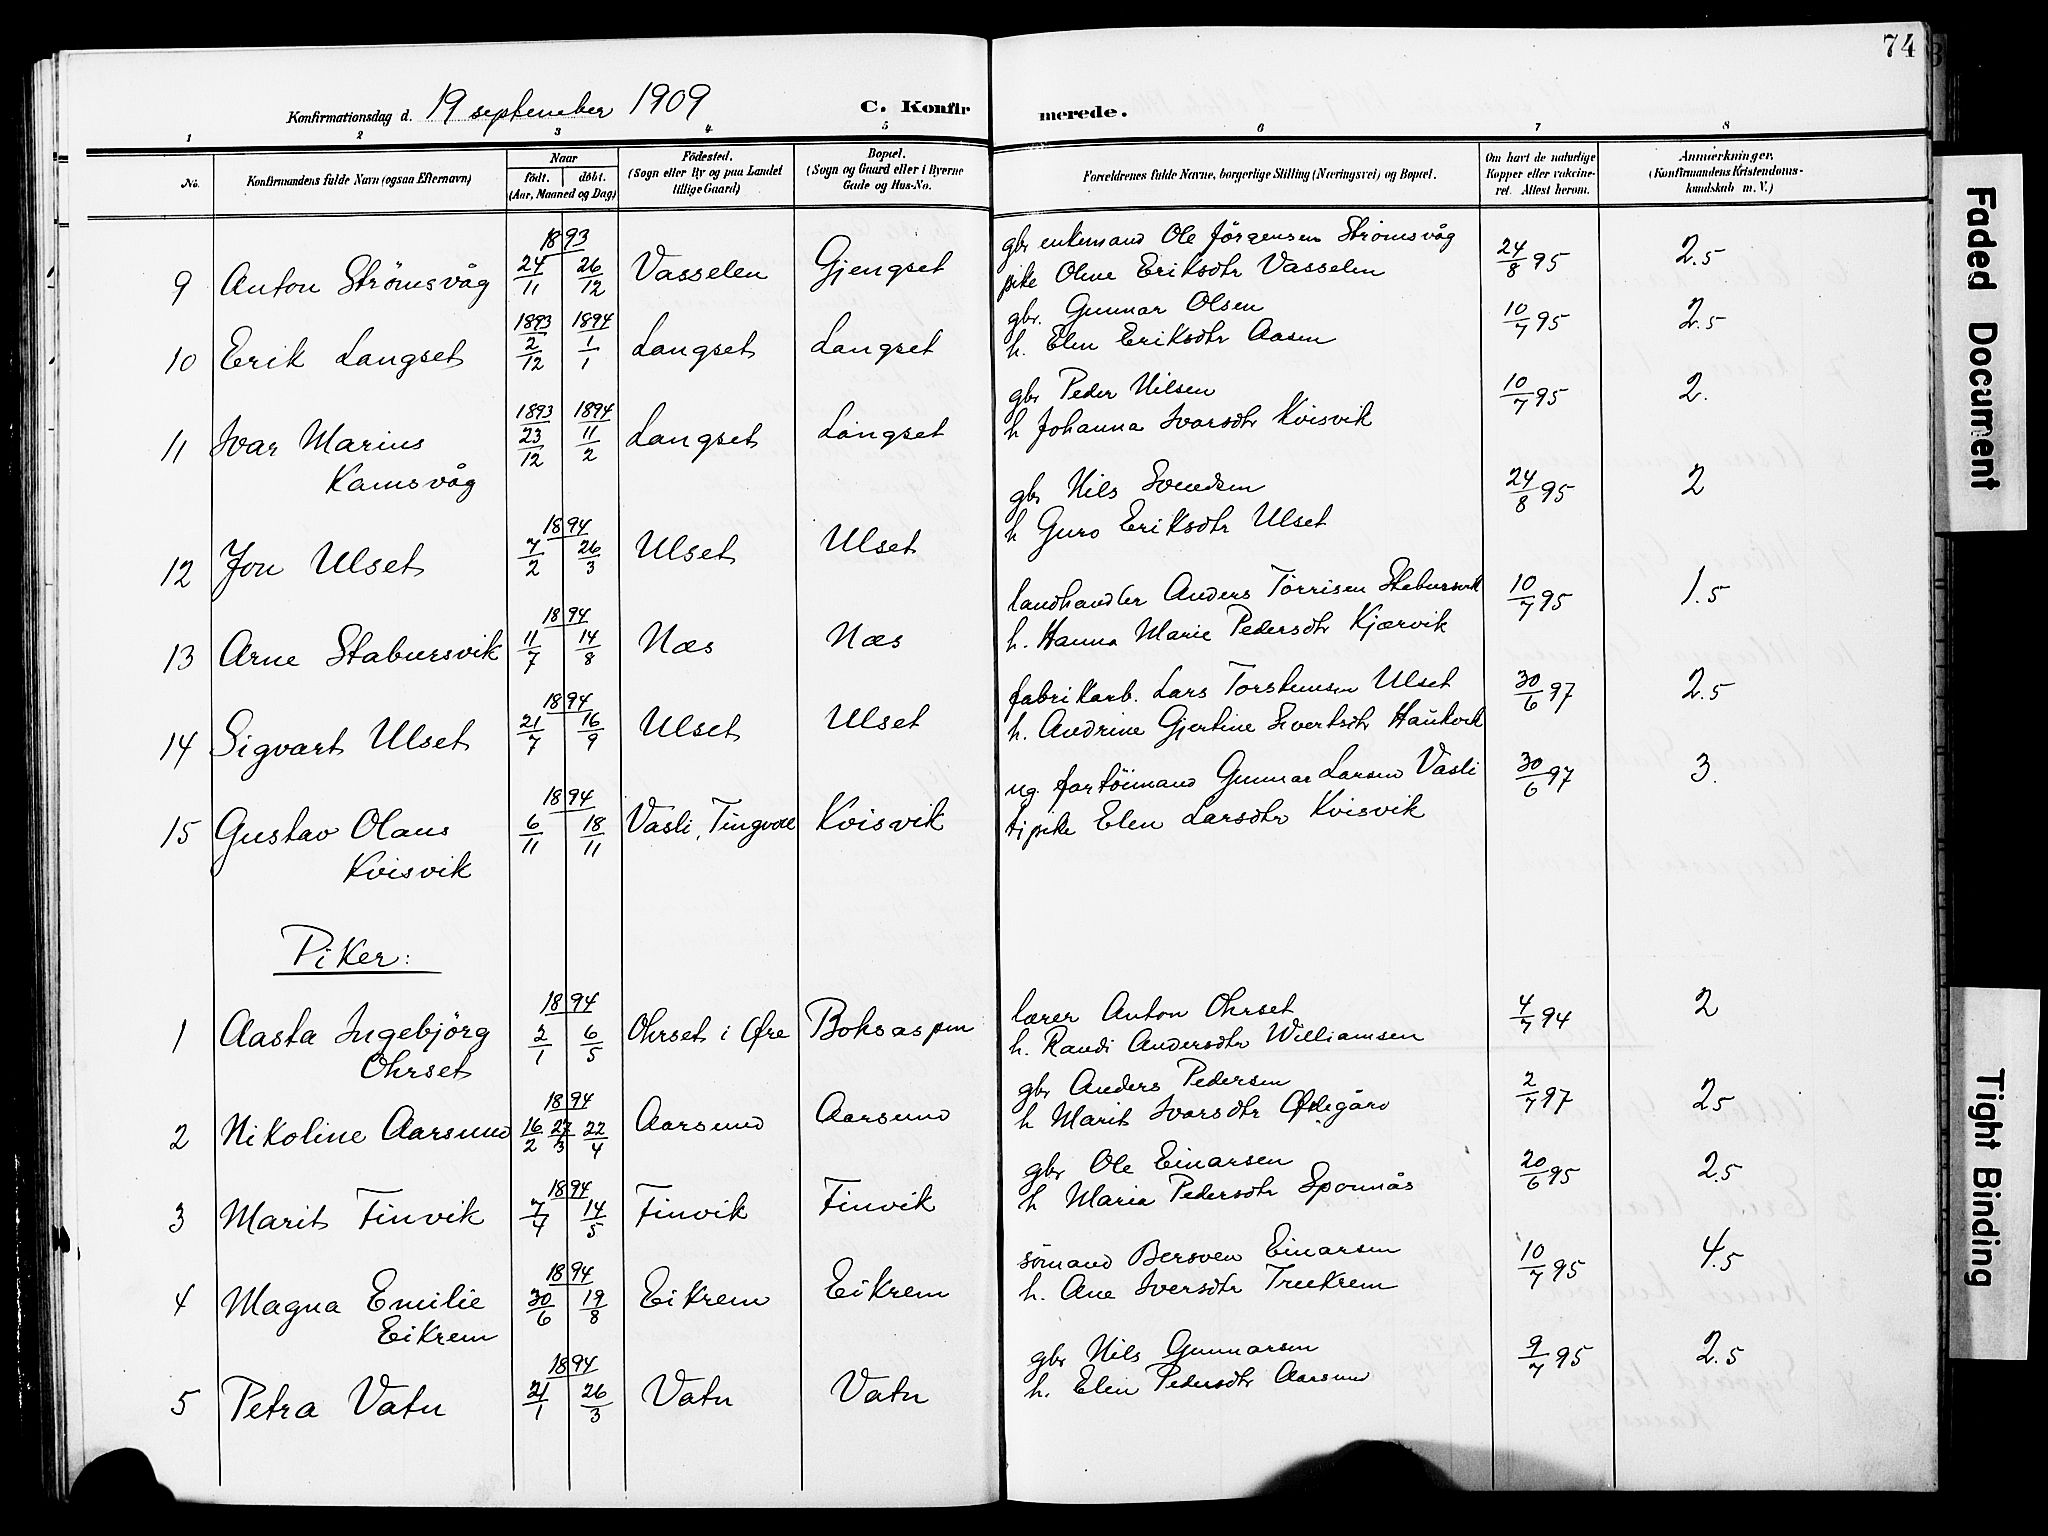 74
Konfirmationsdag d. 19 september 1909 C. Konfirmerede.
1 2 3 4 5 6 7 8
No. Konfirmandens fulde Navn (ogsaa Efternavn) Naar født. døbt. (Aar, Maaned og Dag) Födested. (Sogn eller By og paa Landet tillige Gaard) Bopæl. (Sogn og Gaard eller i Byerne Gade og Hus-No. Forældrenes fulde Navne, borgerlige Stilling (Næringsvei) og Bopæl. Om havt de naturlige Kopper eller vakcineret. Attest herom. Anmærkninger. (Konfirmandens Kristendomskundskab m. V.)
9 Anton Strömsvåg 1893 24/11 26/12 Vasselen Gjengset gbr enkemand Ole Jörgensen Strömsvåg 24/8 95 2.5
pike Oline Eriksdtr Vasselen
10 Erik Langset 1893 2/12 1894 1/1 Langset Langset gbr. Gunnar Olsen 10/7 95 2.5
h. Elen Eriksdtr Aasen
11 Ivar Marius 1893 23/12 1894 11/2 Langset Langset gbr Peder Nilsen 10/7 95 2.
Kamsvåg h Johanna Ivarsdtr Kvisvik
12 Jon Ulset 1894 7/2 26/3 Ulset Ulset gbr Nils Svendsen 24/8 95 2
h Guro Eriksdtr Ulset
13 Arne Stabursvik 1894 11/7 14/8 Næs Næs landhandler Anders Torrisen Stabursvik 10/7 95 1.5
h. Hanna Marie Pedersdtr Kjærvik
14 Sigvart Ulset 1894 21/7 16/9 Ulset Ulset fabrikarb. Lars Torstensen Ulset 30/6 97 2.5
h. Andrine Gjertine Sivertsdtr Haukvik
15 Gustav Olaus 1894 6/11 18/11 Vasli, Tingvoll Kvisvik ug. fartöimand Gunnar Larsen Vasli 30/6 97 3.
Kvisvik tj pike Elen Larsdtr Kvisvik
Piker:
1 Aasta Ingebjörg 1894 2/1 6/5 Ohrset i Øre Boksaspen lærer Anton Ohrset 4/7 94 2
Ohrset h. Randi Andersdtr Williamsen
2 Nikoline Aarsund 1894 16/2 27/3 22/4 Aarsund Aarsund gbr Anders Pedersen 2/7 97 2.5
h Marit Ivarsdtr Ødegård
3 Marit Finvik 1894 7/4 14/5 Finvik Finvik gbr Ole Einarsen 20/6 95 2.5
h Maria Pedersdtr Sponnås
4 Magna Emilie 1894 30/6 19/8 Eikrem Eikrem sömand Bersven Einarsen 10/7 95 4.5
Eikrem h. Ane Iversdtr Treekrem
5 Petra Vatn 1894 21/1 26/3 Vatn Vatn gbr Nils Gunnarsen 9/7 95 2.5
h. Elen Pedersdtr Aarsund
Faded Document
Tight Binding